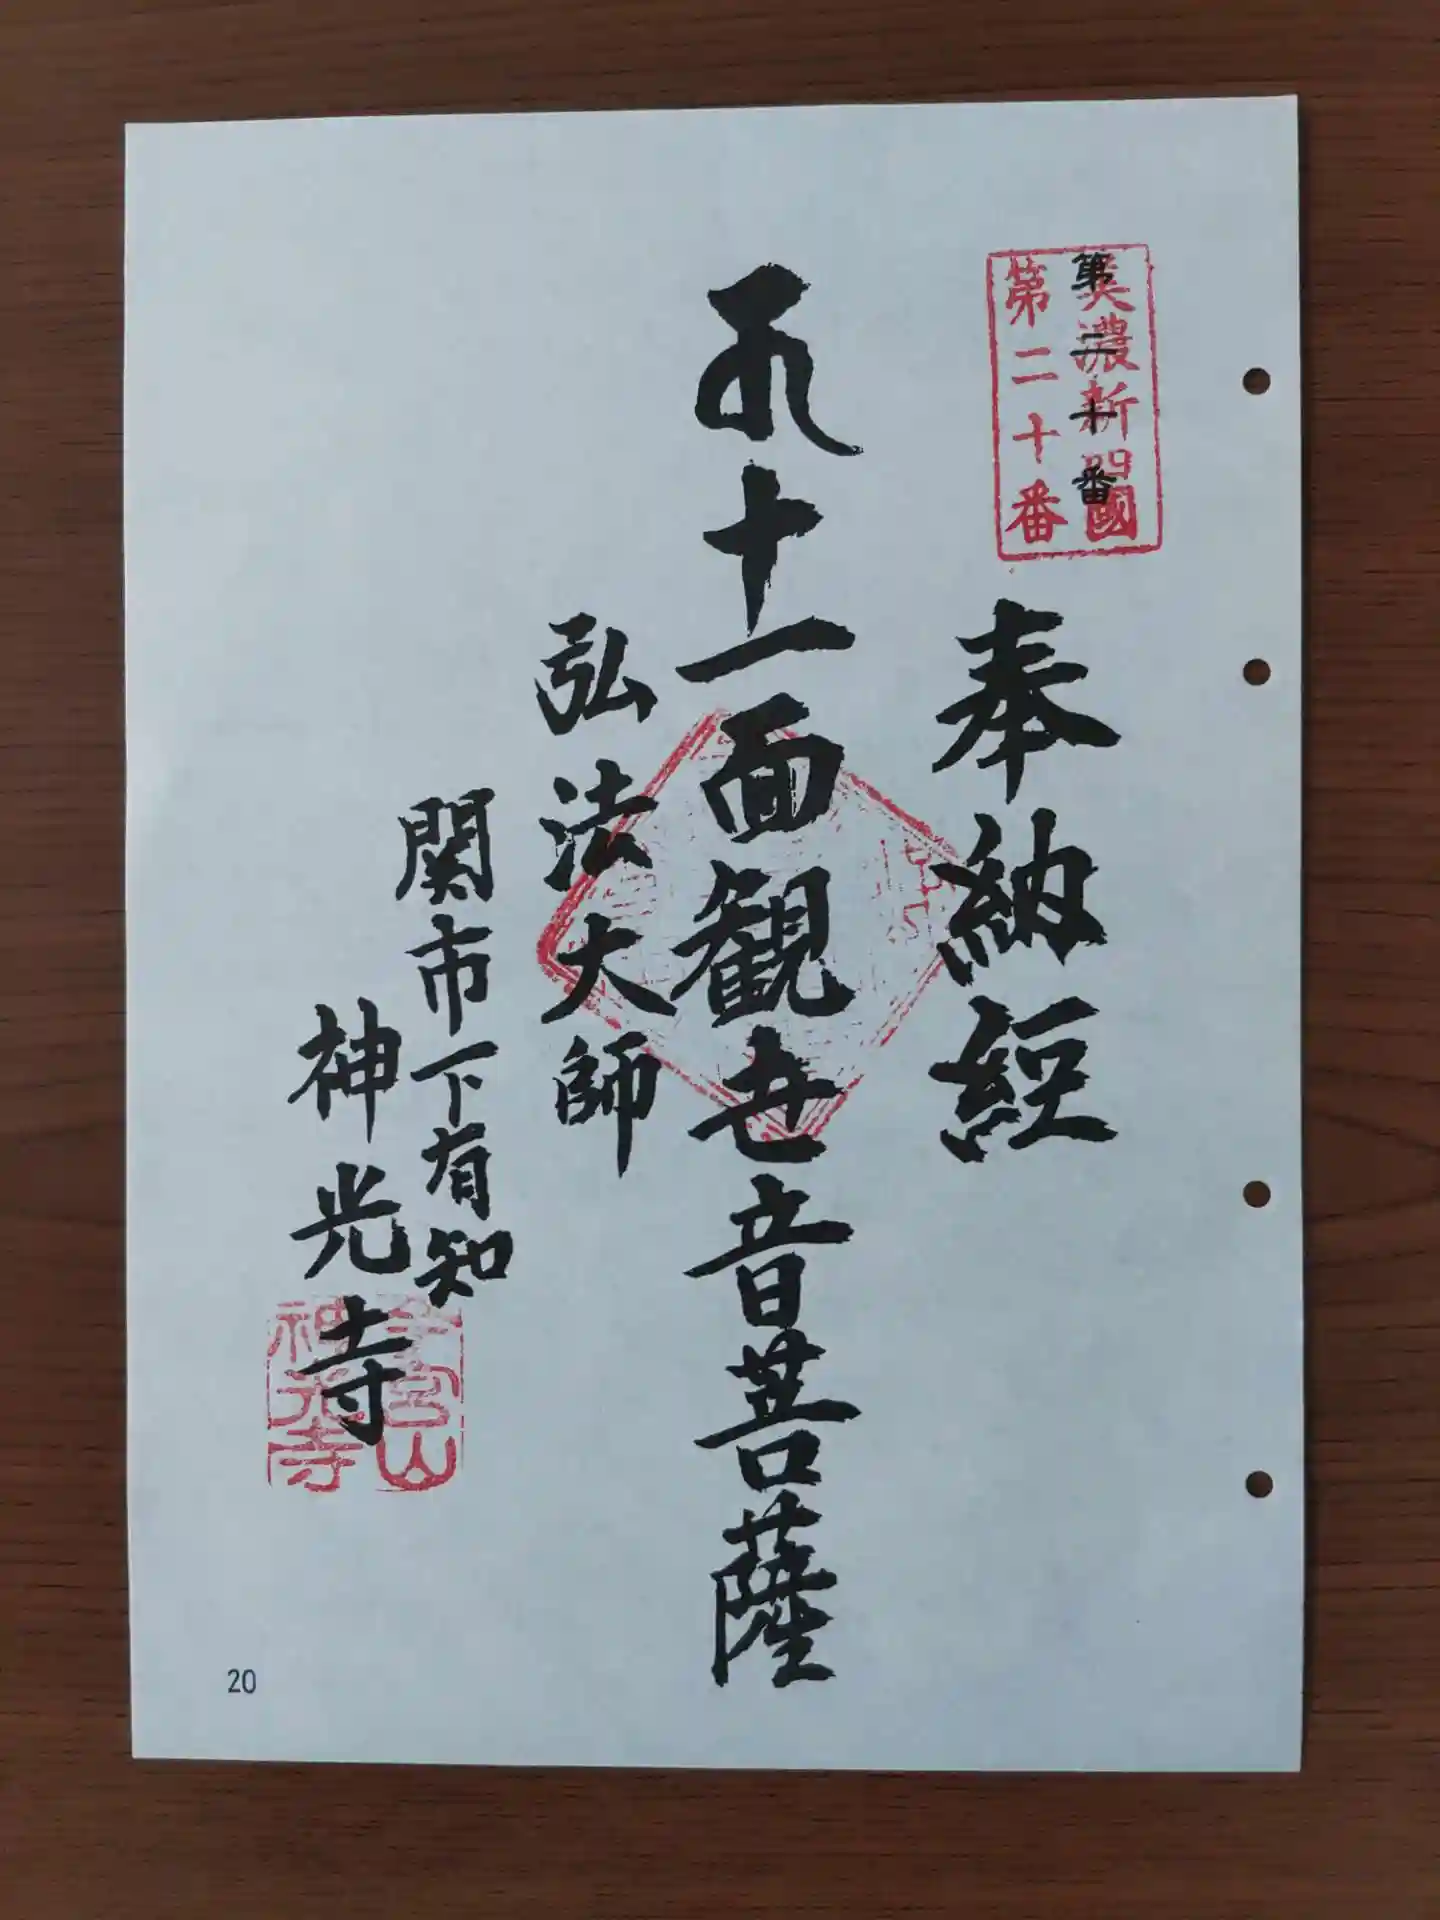 美濃新四國
第二十番
第二十番
奉納経
十一面観世音菩薩
弘法大師
関市下有知
神光寺
山
神光寺
20